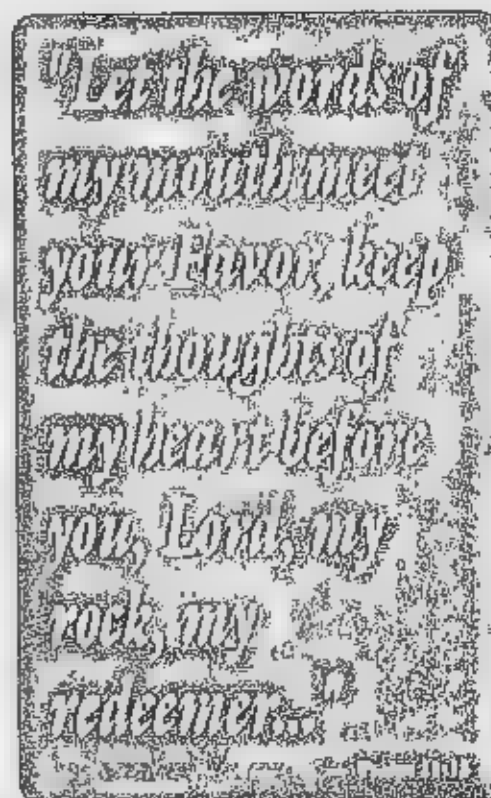 "Let the words of
my mouth meet
your Favor, keep
the thoughts of
my heart before
you, Lord, my
rock, my
redeemer..."